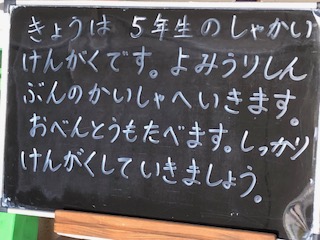 きょうは 5年生のしゃかい
けんがくです。よみうりしん
ぶんのかいしゃへいきます。
おべんとうもたべます。しっかり
けんがくしていきましょう。